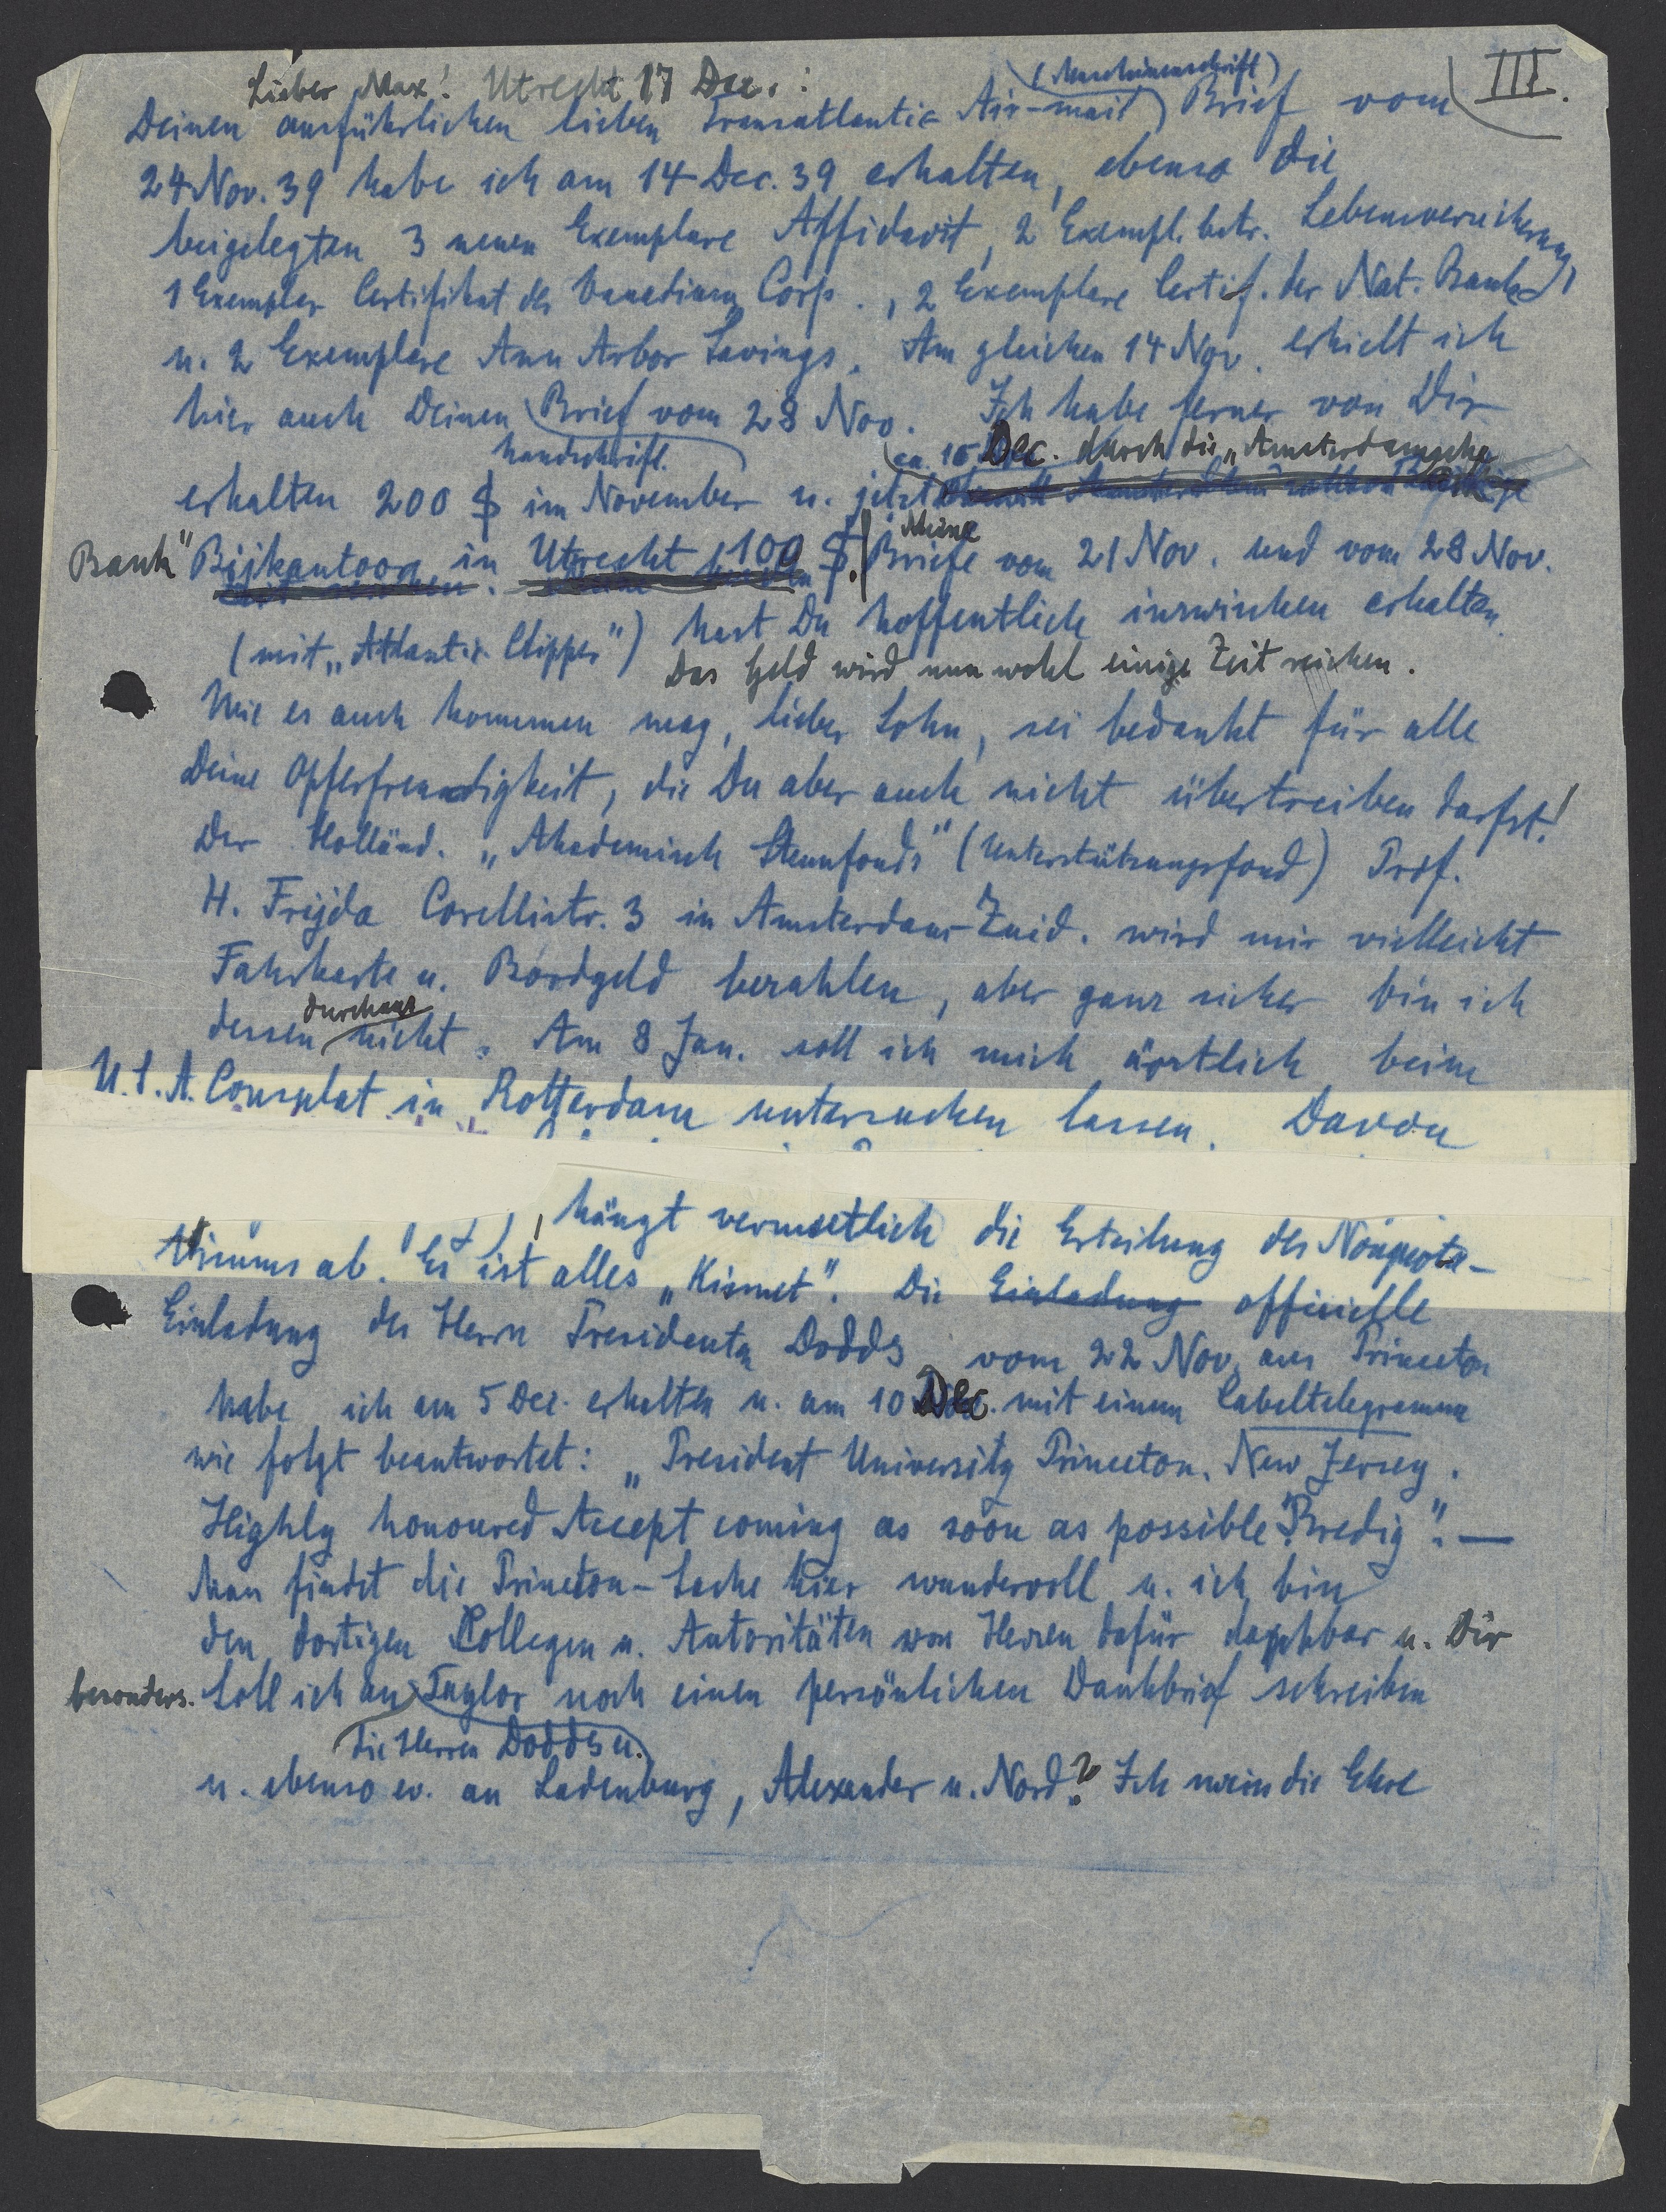 III.
Lieber Max! Utrecht 17 Dec.:
(Maschinenschrift)
Deinen ausführlichen lieben Transatlantic Air-mail Brief vom
24 Nov. 39 habe ich am 14 Dec. 39 erhalten, ebenso die
beigelegten 3 neuen Exemplare Affidavit, 2 Exempl. betr. Lebensversicherung,
1 Exemplar Certifikat der Vanadium Corp., 2 Exemplare Certif. der Nat. Bank
u. 2 Exemplare Ann Arbor Savings. Am gleichen 14 Nov. erhielt ich
hier auch Deinen Brief vom 28 Nov. Ich habe ferner von Dir
handschriftl.
ca. 15 Dec. durch die „Amsterdamsche
erhalten 200 $ im November u. jetzt
Bank" Bijkantoor in Utrecht 100 $. Meine Briefe vom 21 Nov. und vom 28 Nov.
(mit „Atlantic Clipper") hast Du hoffentlich inzwischen erhalten.
Das Geld wird nun wohl einige Zeit reichen.
Wie es auch kommen mag, lieber Sohn, sei bedankt für alle
Deine Opferfreudigkeit, die Du aber auch nicht übertreiben darfst!
Der Holländ. „Akademisch Steunfonds" (Unterstützungsfond) Prof.
H. Frijda Corellistr. 3 in Amsterdam-Zuid. wird mir vielleicht
Fahrkarte u. Bordgeld bezahlen, aber ganz sicher bin ich
dessen durchaus nicht. Am 8 Jan. soll ich mich ärztlich beim
U.S.A. Consulat in Rotterdam untersuchen lassen. Davon
, hängt vermutlich die Erteilung des Nonquota-
Visums ab. Es ist alles „Kismet". Die Einladung officielle
Einladung des Herrn Presidenten Dodds vom 22 Nov. aus Princeton
habe ich am 5 Dec. erhalten u. am 10 Dec. mit einem Cabeltelegramm
wie folgt beantwortet: „President University Princeton. New Jersey.
Highly honoured Accept coming as soon as possible. Bredig". —
Man findet die Princeton-Sache hier wundervoll u. ich bin
den dortigen Collegen u. Autoritäten von Herzen dafür dankbar u. Dir
besonders. Soll ich an Taylor noch einen persönlichen Dankbrief schreiben
die Herren Dodds u.
u. ebenso ev. an Ladenburg, Alexander u. Nord? Ich weiss die Ehre